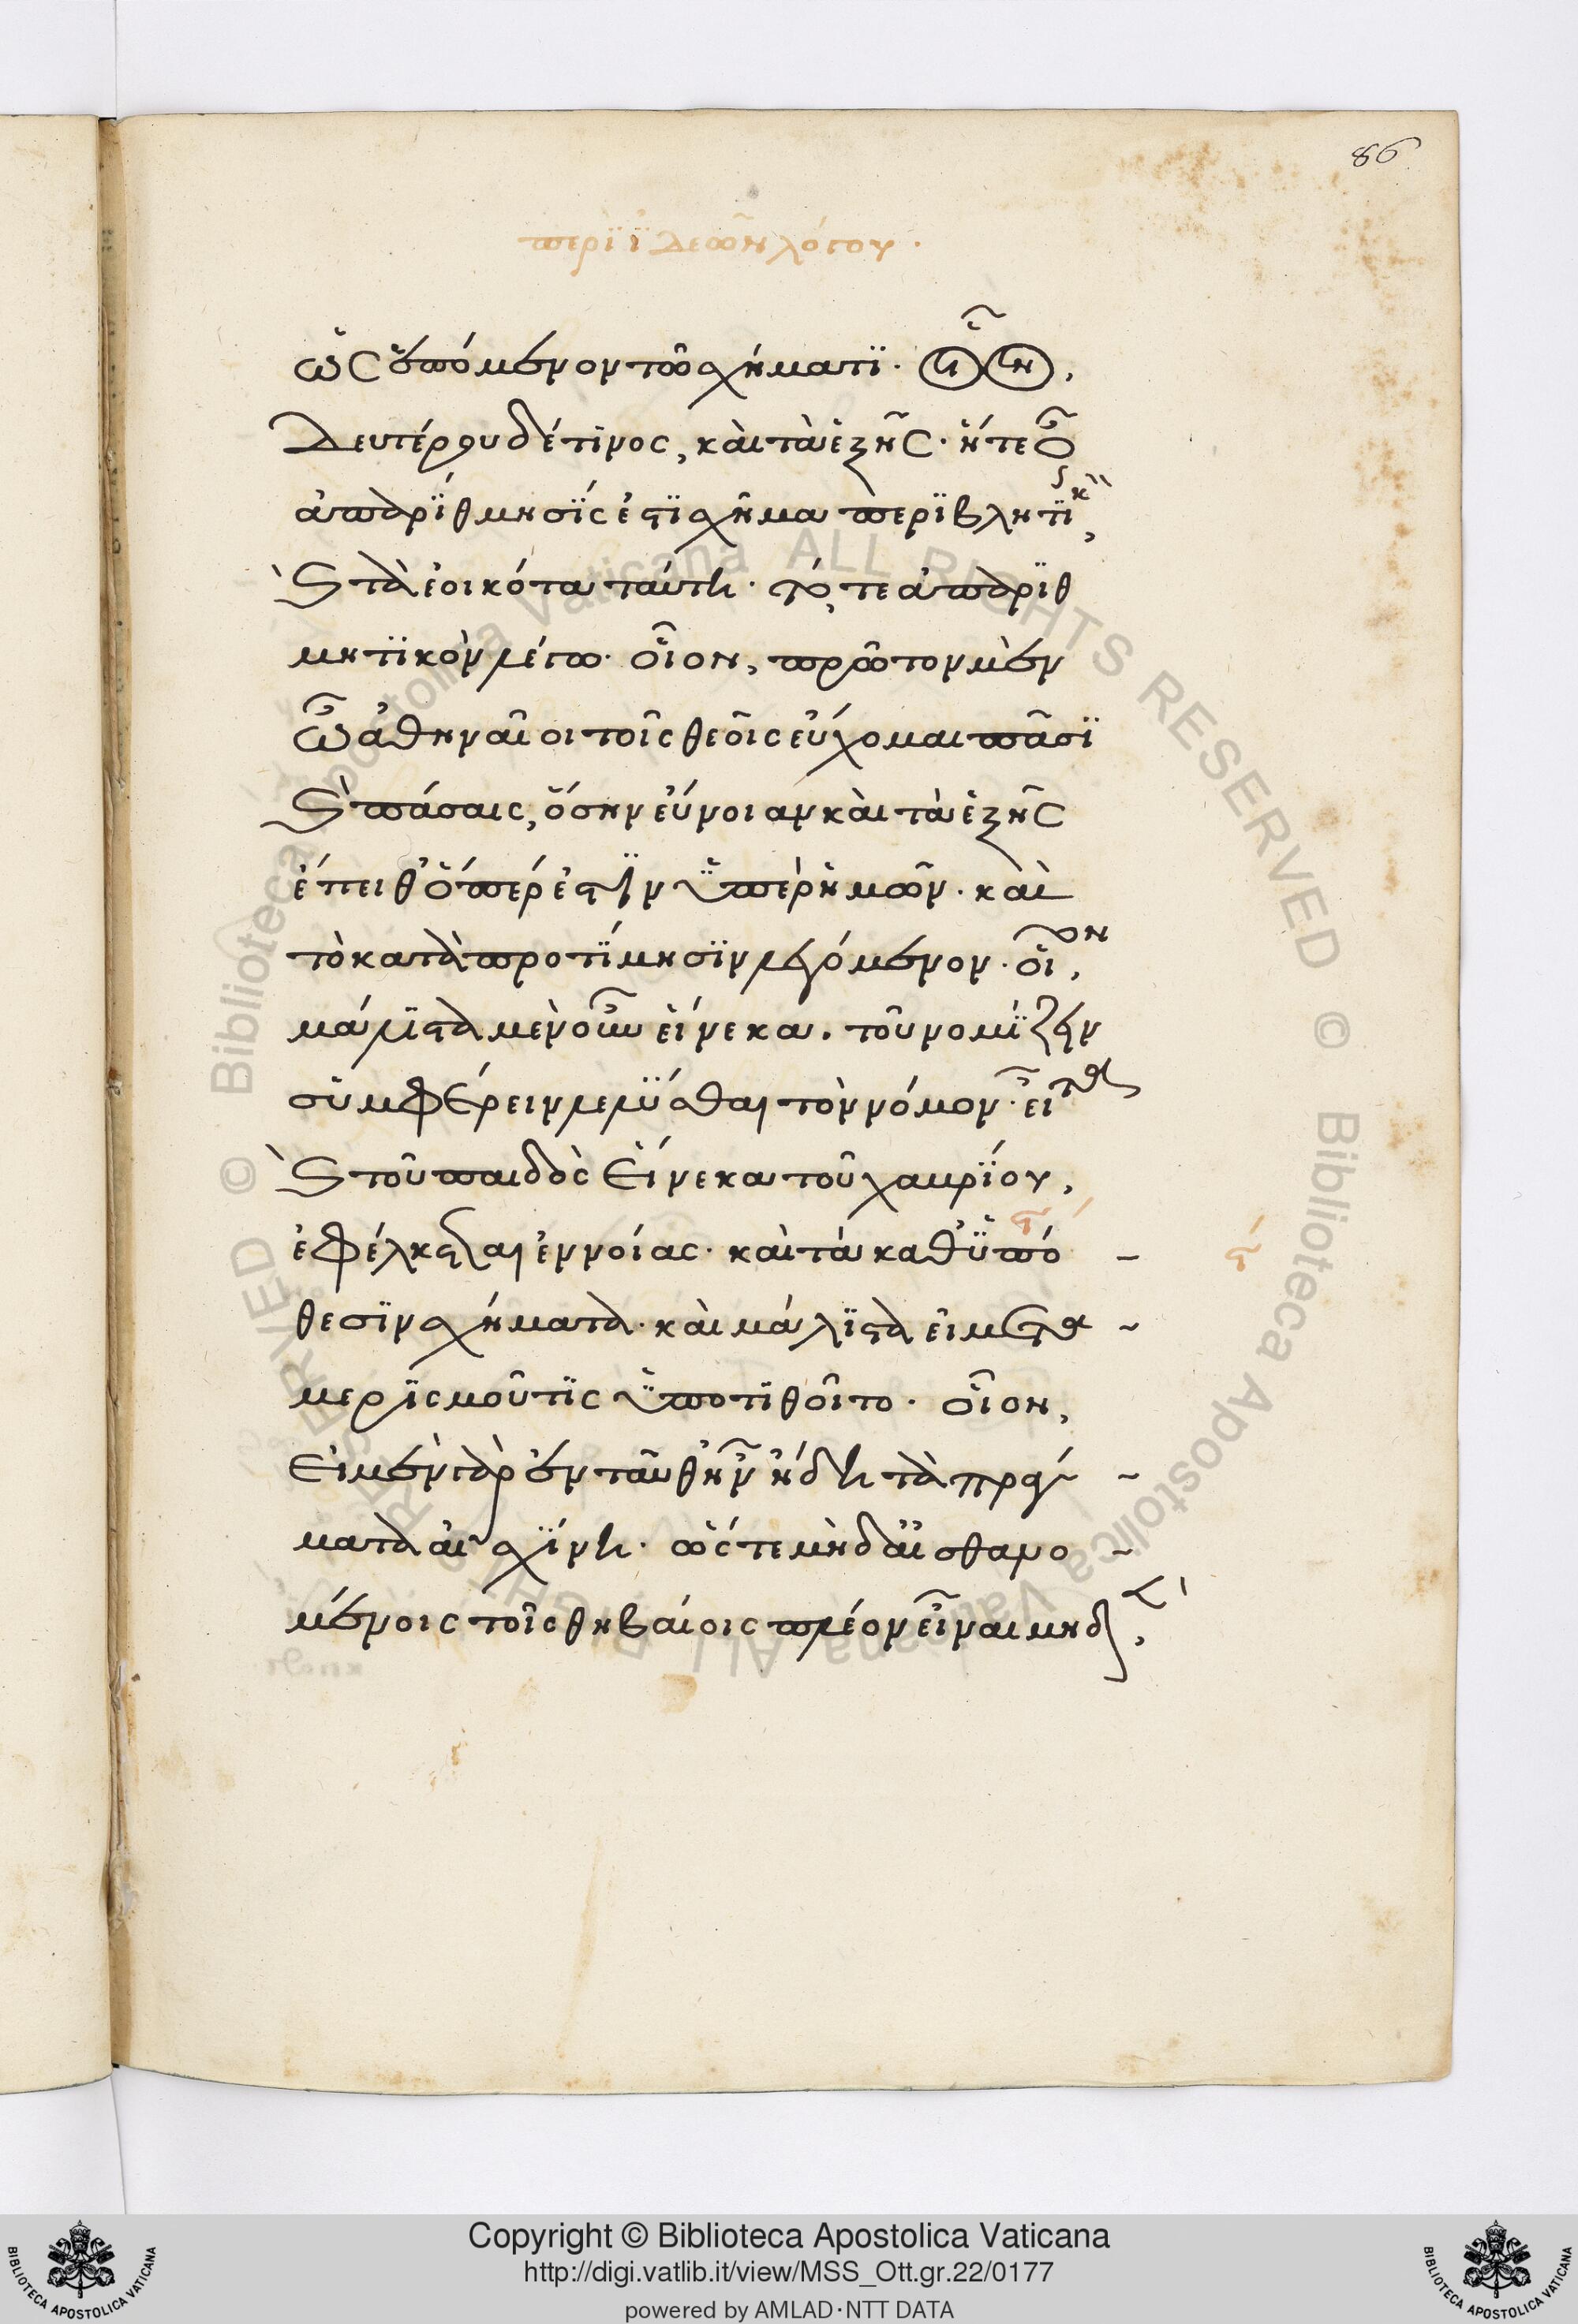 86
περὶ ἰδεῶν λόγου.
ὡς ἑπόμενον τῶ σχήματι.
δευτέρου δέ τινος, καὶ τὰ ἑξῆς. ἥ τε οὖν
ἀπαρίθμησίς ἐστι σχῆμα περιβλητικὸν,
καὶ τὰ ἐοικότα ταύτη. τό, τε ἀπαριθ
μητικὸν λέγω. οἷον, πρῶτον μὲν
ὦ ἀθηναῖοι τοῖς θεοῖς εὔχομαι πᾶσι
καὶ πάσαις, ὅσην εὔνοιαν καὶ τὰ ἑξῆς
ἔπειθ' ὅπερ ἐστὶν ὑπὲρ ἡμῶν. καὶ
τὸ κατὰ προτίμησιν λεγόμενον. οἷον,
μάλιστα μὲν οὖν εἵνεκα. τοῦ νομίζειν
συμφέρειν λελύσθαι τὸν νόμον. εἶτα
καὶ τοῦ παιδὸς εἵνεκα τοῦ χαμρίου,
ἐφέλκεται ἐννοίας. καὶ τὰ καθ' ὑπό
θεσιν σχήματα. καὶ μάλιστα εἰ μετὰ
μερισμοῦ τις ὑποτιθοῖτο. οἷον,
εἰ μὲν γὰρ ἐνταῦθ' ἦν ἤδη τὰ πράγ
ματα αἰσχίνη. ὥστε μὴδ' αἰσθανο
μένοις τοῖς θηβαίοις πλέον εἶναι μηδὲν,
Copyright © Biblioteca Apostolica Vaticana
http://digi.vatlib.it/view/MSS_Ott.gr.22/0177
powered by AMLAD·NTT DATA